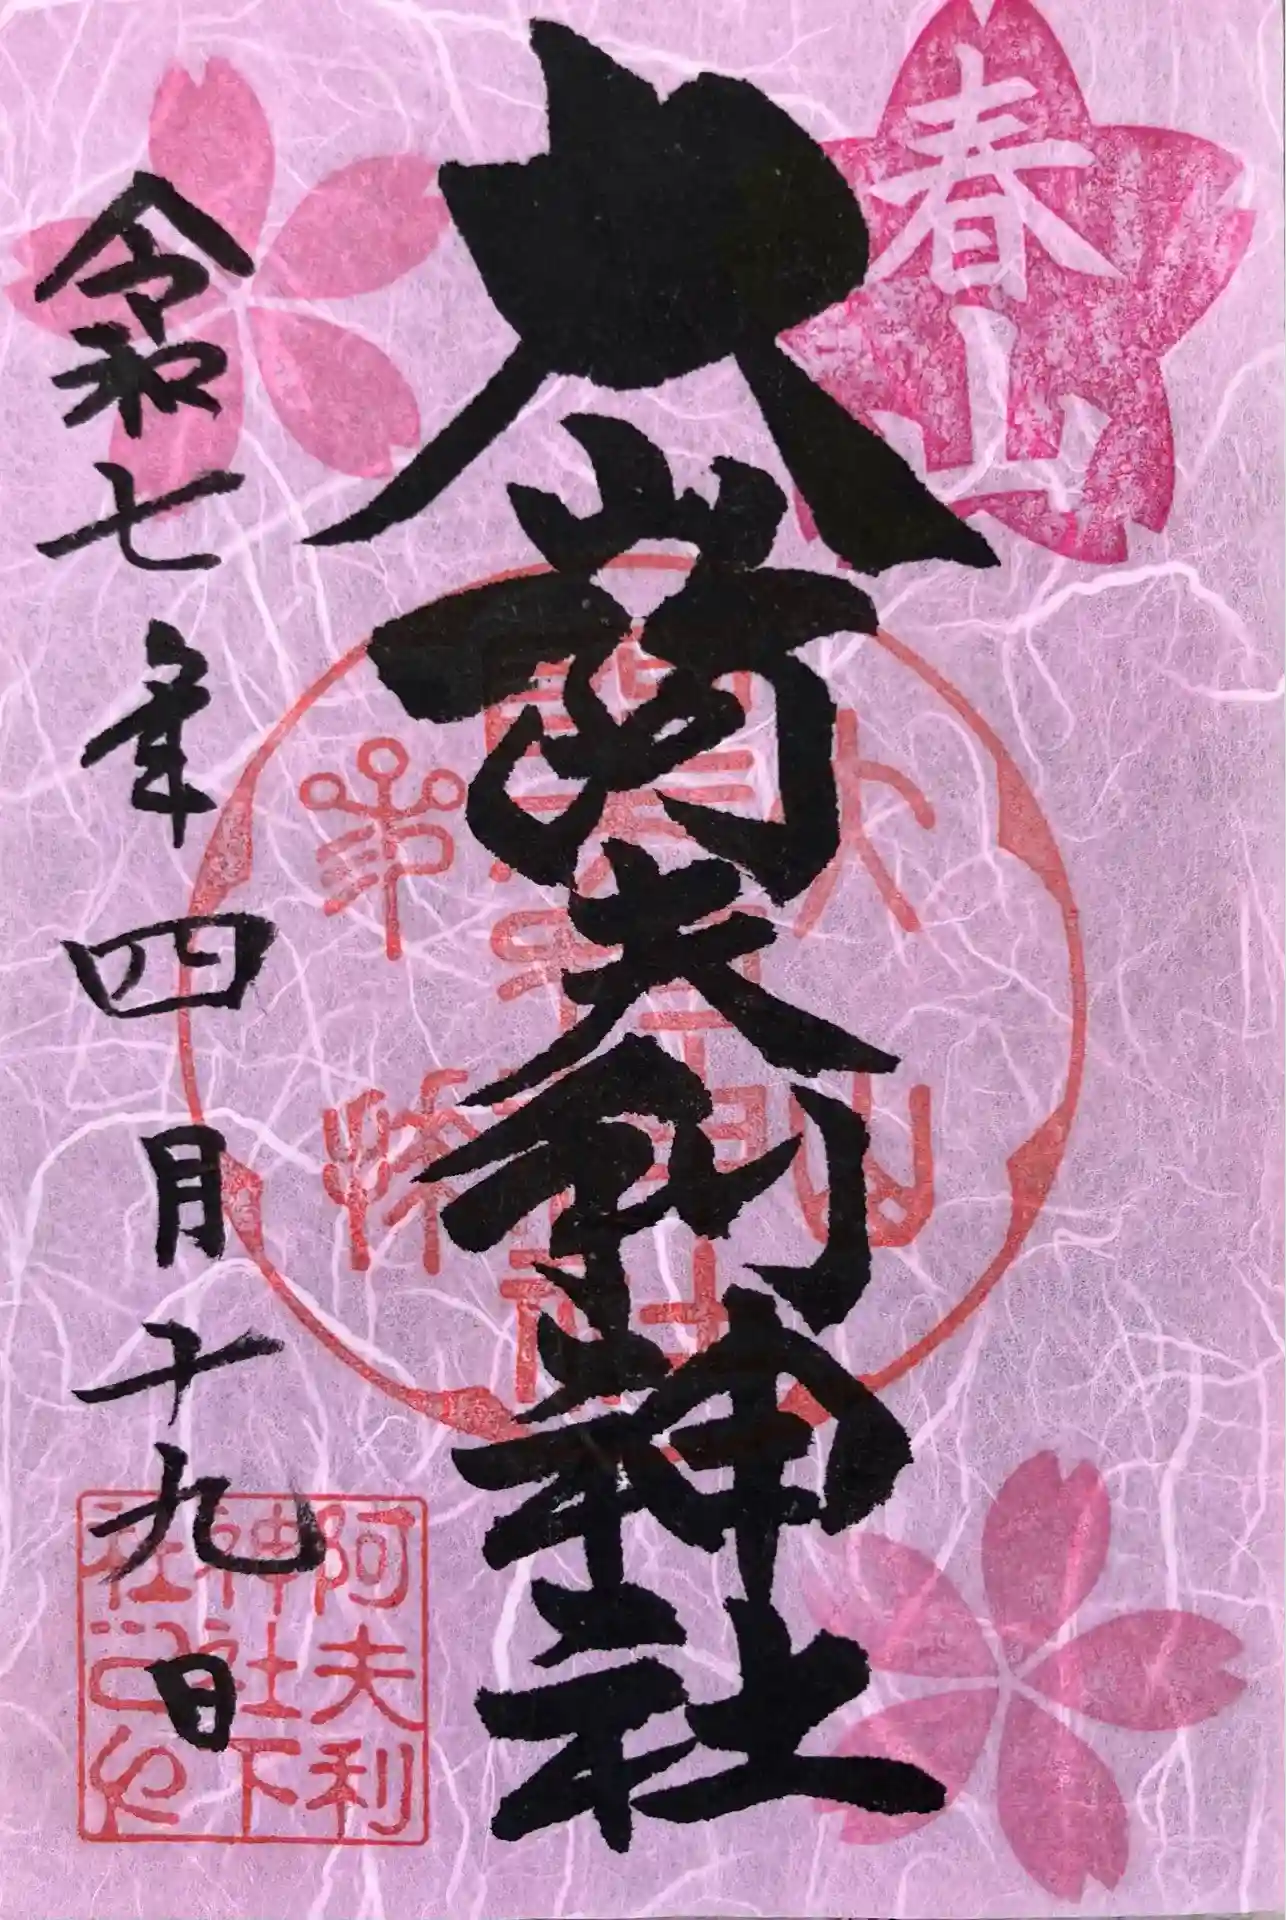 春山
大山阿夫利神社
令和七年四月十九日
阿夫利
神社下
社之印